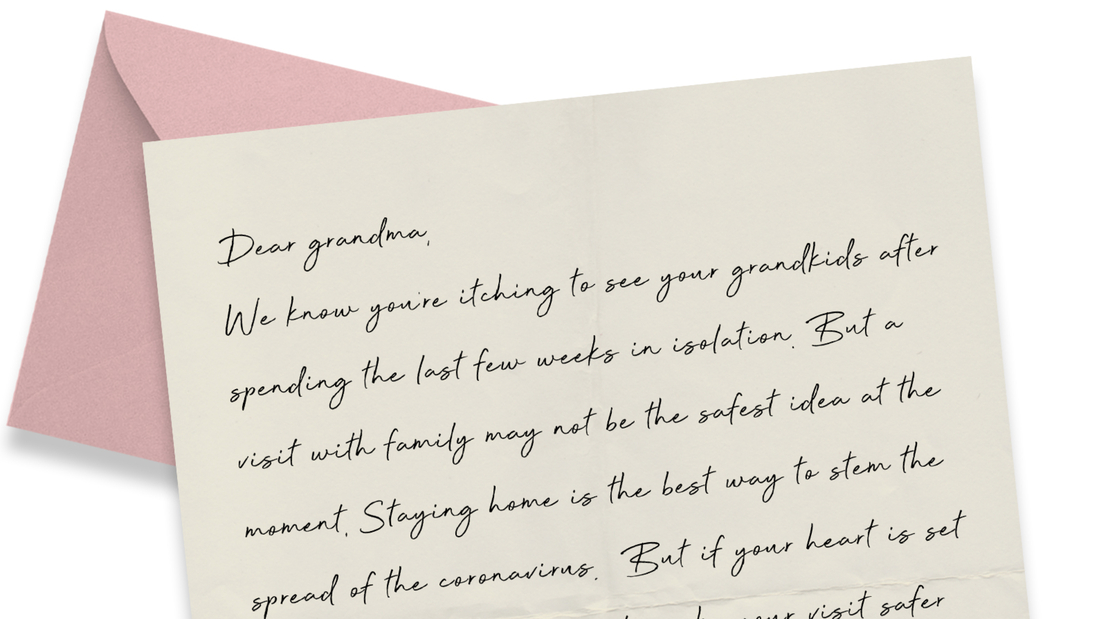 Dear grandma,
We know you're itching to see your grandkids after
spending the last few weeks in isolation. But a
visit with family may not be the safest idea at the
moment. Staying home is the best way to stem the
spread of the coronavirus. But if your heart is set
your visit safer